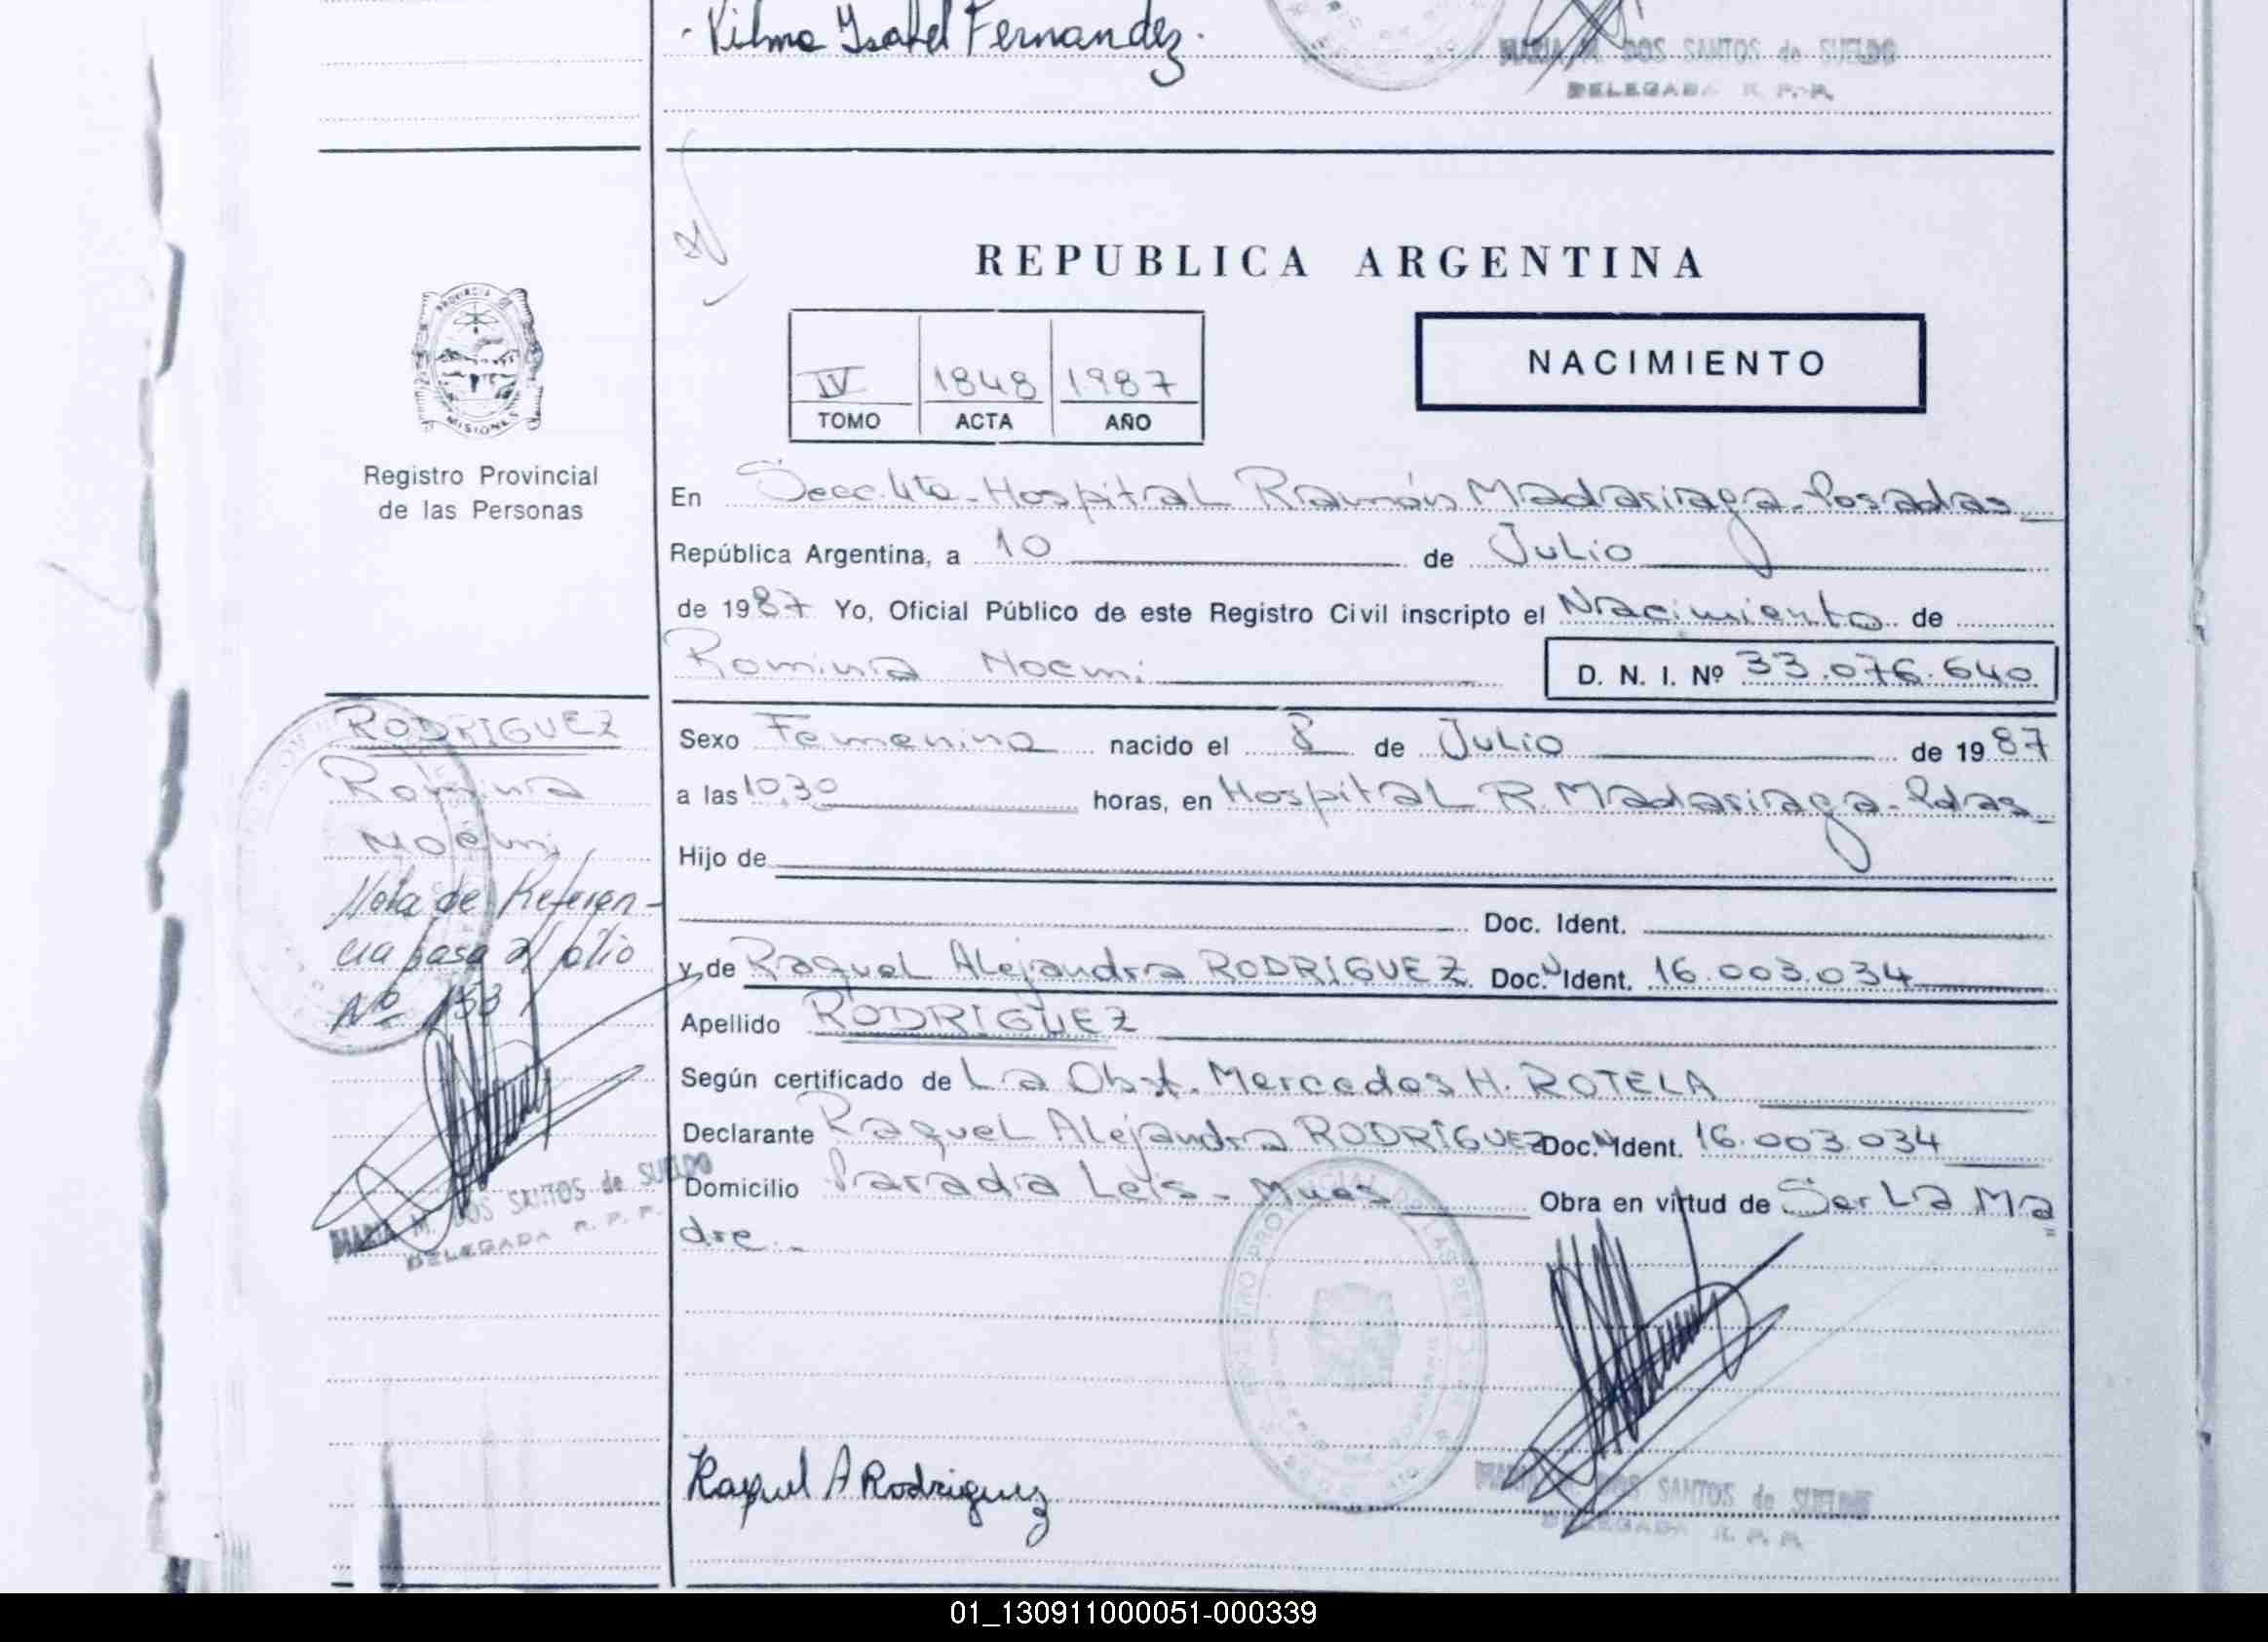 Vilma Ysabel Fernandez.
MARIA M. DOS SANTOS de SUELDO
DELEGADA R. P. P.
REPUBLICA ARGENTINA
PROVINCIA DE
MISIONES
NACIMIENTO
IV 1848 1987
TOMO ACTA AÑO
Registro Provincial
de las Personas
En Secc. 4ta - Hospital Ramón Madariaga - Posadas
República Argentina, a 10 de Julio
de 1987 Yo, Oficial Público de este Registro Civil inscripto el Nacimiento de
Romina Noemi D. N. I. Nº 33.076.640
RODRIGUEZ
Romina
Noemi
Nota de Referen-
cia pasa al folio
Nº 153
MARIA M. DOS SANTOS de SUELDO
DELEGADA R. P. P.
Sexo Femenino nacido el 8 de Julio de 1987
a las 10,30 horas, en Hospital R. Madariaga - Pdas
Hijo de
Doc. Ident.
y de Raquel Alejandra RODRIGUEZ Doc. Ident. 16.003.034
Apellido RODRIGUEZ
Según certificado de La Obst. Mercedes H. ROTELA
Declarante Raquel Alejandra RODRIGUEZ Doc. Ident. 16.003.034
Domicilio Parada Leis - Mnes Obra en virtud de Ser La Ma
dre.-
Raquel A Rodriguez
MARIA M. DOS SANTOS de SUELDO
DELEGADA R. P. P.
01_130911000051-000339